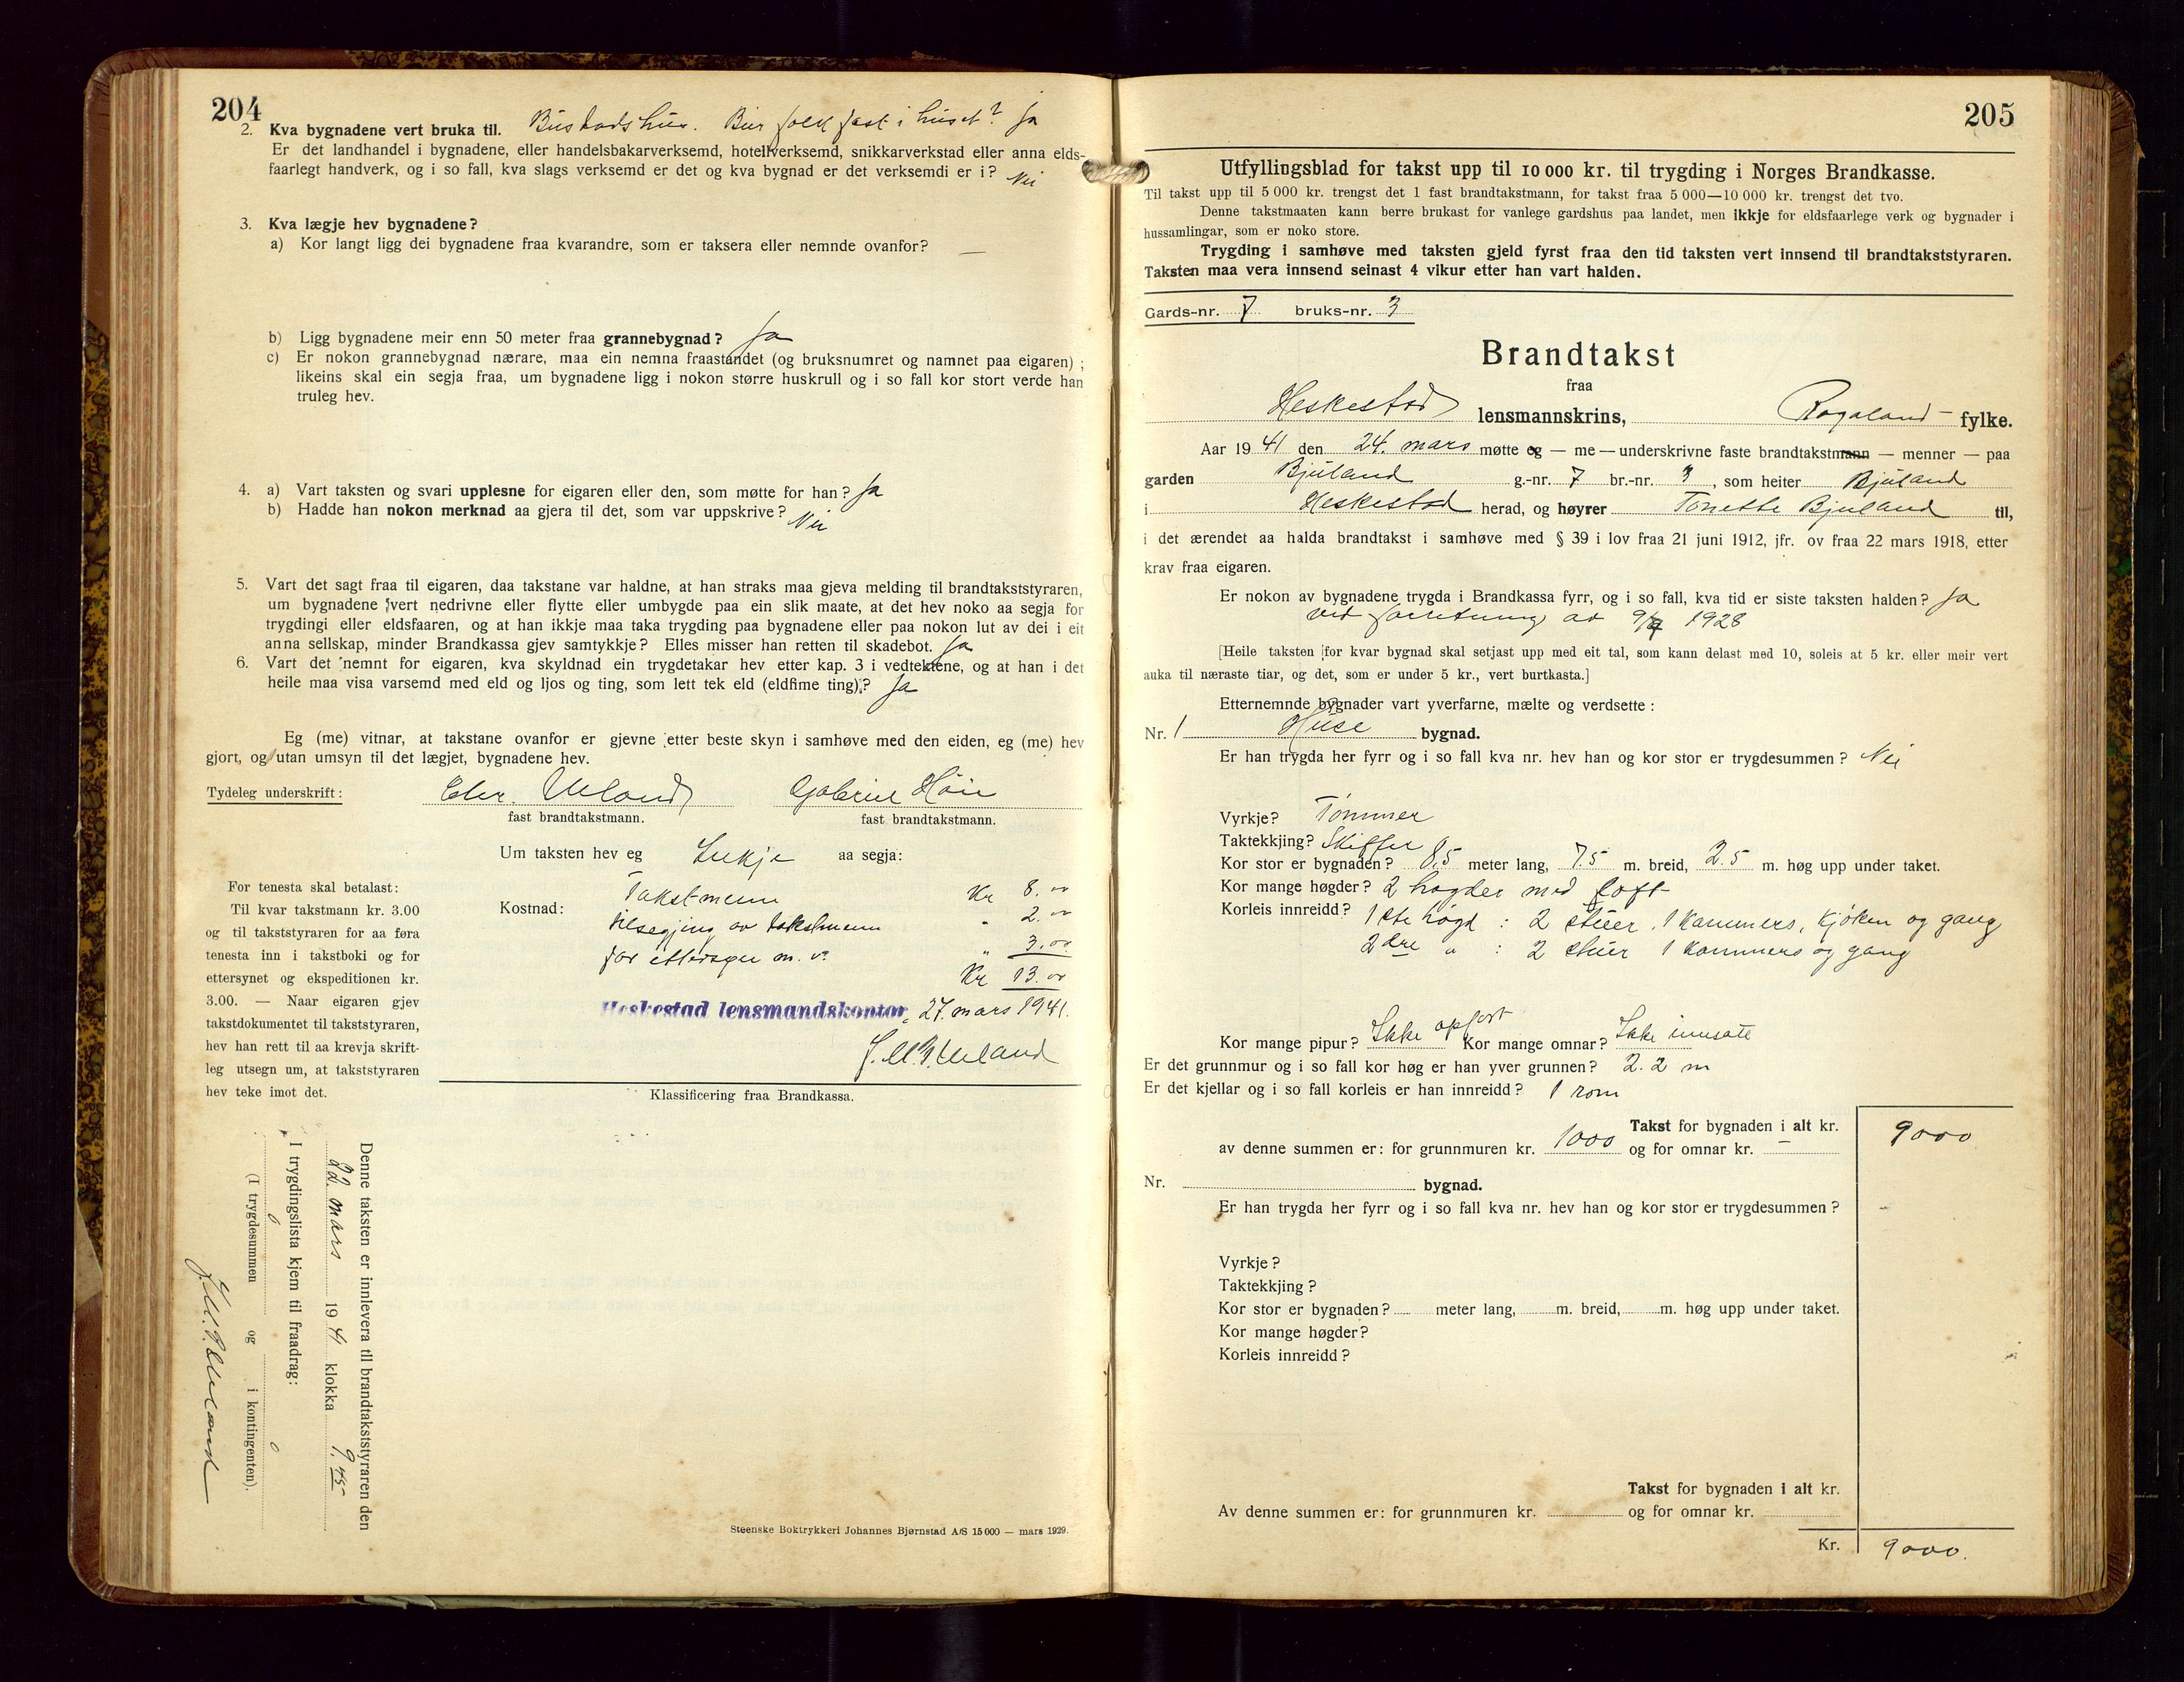 204
2. Kva bygnadene vert bruka til. Bustadshus. Bur folk fast i huset? Ja
Er det landhandel i bygnadene, eller handelsbakarverksemd, hotellverksemd, snikkarverkstad eller anna elds-
faarlegt handverk, og i so fall, kva slags verksemd er det og kva bygnad er det verksemdi er i? Nei
3. Kva lægje hev bygnadene?
a) Kor langt ligg dei bygnadene fraa kvarandre, som er taksera eller nemnde ovanfor? —
b) Ligg bygnadene meir enn 50 meter fraa grannebygnad? Ja
c) Er nokon grannebygnad nærare, maa ein nemna fraastandet (og bruksnumret og namnet paa eigaren);
likeins skal ein segja fraa, um bygnadene ligg i nokon større huskrull og i so fall kor stort verde han
truleg hev.
4. a) Vart taksten og svari upplesne for eigaren eller den, som møtte for han? Ja
b) Hadde han nokon merknad aa gjera til det, som var uppskrive? Nei
5. Vart det sagt fraa til eigaren, daa takstane var haldne, at han straks maa gjeva melding til brandtakststyraren,
um bygnadene vert nedrivne eller flytte eller umbygde paa ein slik maate, at det hev noko aa segja for
trygdingi eller eldsfaaren, og at han ikkje maa taka trygding paa bygnadene eller paa nokon lut av dei i eit
anna sellskap, minder Brandkassa gjev samtykkje? Elles misser han retten til skadebot. Ja
6. Vart det nemnt for eigaren, kva skyldnad ein trygdetakar hev etter kap. 3 i vedtektene, og at han i det
heile maa visa varsemd med eld og ljos og ting, som lett tek eld (eldfime ting)? Ja
Eg (me) vitnar, at takstane ovanfor er gjevne etter beste skyn i samhøve med den eiden, eg (me) hev
gjort, og utan umsyn til det lægjet, bygnadene hev.
Tydeleg underskrift: Chr. Ueland Gabriel Høie
fast brandtakstmann. fast brandtakstmann.
Um taksten hev eg Inkje aa segja:
Kostnad: Takstmenn Kr 8.00
tilsegjing av takstmenn " 2.00
for ettersyn m. v. " 3.00
Kr 13.00
Heskestad lensmandskontor, 27. mars 1941.
Ueland
Klassificering fraa Brandkassa.
For tenesta skal betalast:
Til kvar takstmann kr. 3.00
og til takststyraren for aa føra
tenesta inn i takstboki og for
ettersynet og ekspeditionen kr.
3.00. — Naar eigaren gjev
takstdokumentet til takststyraren,
hev han rett til aa krevja skrift-
leg utsegn um, at takststyraren
hev teke imot det.
Denne taksten er innlevera til brandtakststyraren den
22. mars 1941 klokka 9.45
I trygdingslista kjem til fraadrag:
0 0
(I trygdesummen og i kontingenten).
Ueland
Steenske Boktrykkeri Johannes Bjørnstad A/S 15 000 — mars 1929.
205
Utfyllingsblad for takst upp til 10 000 kr. til trygding i Norges Brandkasse.
Til takst upp til 5 000 kr. trengst det 1 fast brandtakstmann, for takst fraa 5 000—10 000 kr. trengst det tvo.
Denne takstmaaten kann berre brukast for vanlege gardshus paa landet, men ikkje for eldsfaarlege verk og bygnader i
hussamlingar, som er noko store.
Trygding i samhøve med taksten gjeld fyrst fraa den tid taksten vert innsend til brandtakststyraren.
Taksten maa vera innsend seinast 4 vikur etter han vart halden.
Gards-nr. 7 bruks-nr. 3
Brandtakst
fraa
Heskestad lensmannskrins, Rogaland fylke.
Aar 1941 den 24. mars møtte eg — me — underskrivne faste brandtakstmann — menner — paa
garden Bjuland g.-nr. 7 br.-nr. 3, som heiter Bjuland
i Heskestad herad, og høyrer Tonette Bjuland til,
i det ærendet aa halda brandtakst i samhøve med § 39 i lov fraa 21 juni 1912, jfr. ov fraa 22 mars 1918, etter
krav fraa eigaren.
Er nokon av bygnadene trygda i Brandkassa fyrr, og i so fall, kva tid er siste taksten halden? Ja
ved forretning av 1928
[Heile taksten for kvar bygnad skal setjast upp med eit tal, som kann delast med 10, soleis at 5 kr. eller meir vert
auka til næraste tiar, og det, som er under 5 kr., vert burtkasta.]
Etternemnde bygnader vart yverfarne, mælte og verdsette:
Nr. 1 Huse bygnad.
Er han trygda her fyrr og i so fall kva nr. hev han og kor stor er trygdesummen? Nei
Vyrkje? Tømmer
Taktekkjing? Skiffer
Kor stor er bygnaden? 8.5 meter lang, 7.5 m. breid, 2.5 m. høg upp under taket.
Kor mange høgder? 2 høgder med loft
Korleis innreidd? 1ste høgd : 2 stuer, 1 kammers, kjøken og gang
2dre " : 2 stuer 1 kammers og gang
Kor mange pipur? Ikke opført Kor mange omnar? Ikke innsatt
Er det grunnmur og i so fall kor høg er han yver grunnen? 2.2 m
Er det kjellar og i so fall korleis er han innreidd? 1 rom
Takst for bygnaden i alt kr. 9000
av denne summen er: for grunnmuren kr. 1000 og for omnar kr. —
Nr. bygnad.
Er han trygda her fyrr og i so fall kva nr. hev han og kor stor er trygdesummen?
Vyrkje?
Taktekkjing?
Kor stor er bygnaden? meter lang, m. breid, m. høg upp under taket.
Kor mange høgder?
Korleis innreidd?
Takst for bygnaden i alt kr.
Av denne summen er: for grunnmuren kr. og for omnar kr.
Kr. 9000.